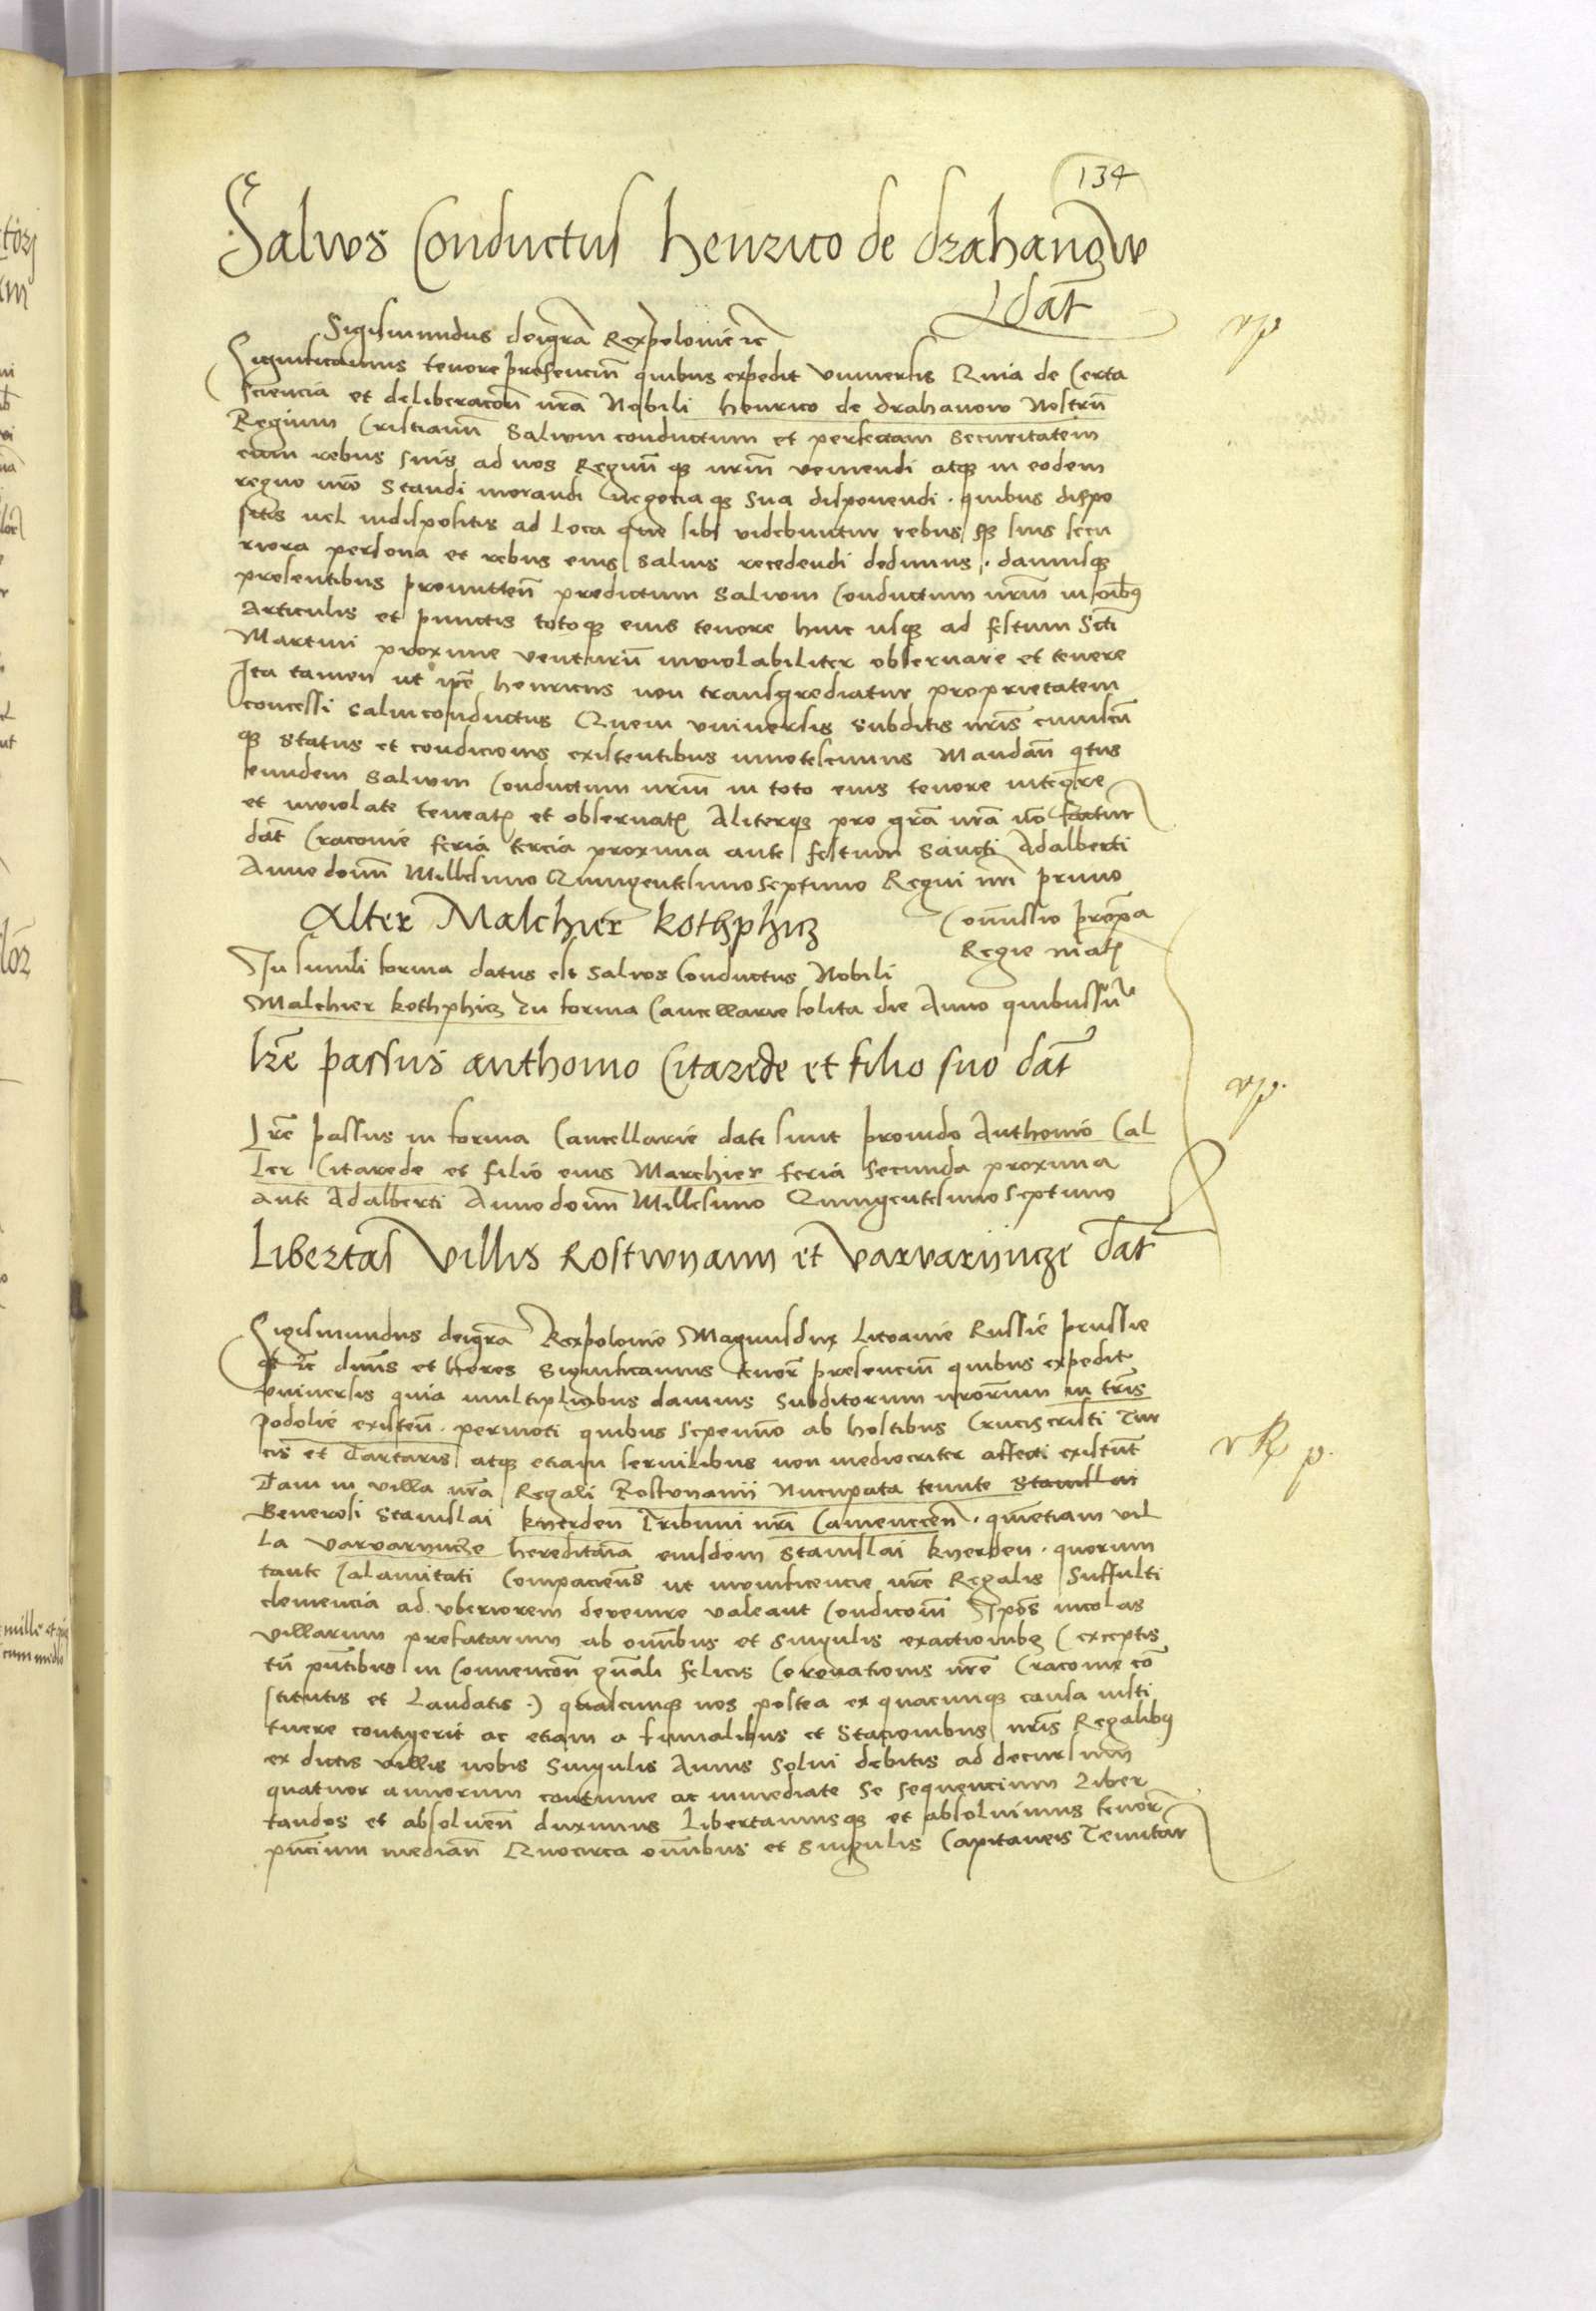 134
Salvus Conductus henrico de drahanow
dat̄
Sigismundus deigrā Rex polonie ꝛc̄
vp
Significamus tenore presenciū quibus expedit vniuersis Quia de Certa
sciencia et deliberacōn nrā Nobili henrico de drahanow Nostrū
Regium Cristianū Saluum conductum et perfectam securitatem
cum rebus suis ad nos Regnū qꝫ nrm̄ veniendi atqꝫ in eodem
regno nrō Standi morandi negocia qꝫ sua disponendi . quibus dispo
sitis uel indispositis ad Loca que sibi videbuntur rebus qꝫ suis secu
riora persona et rebus eius saluis recedendi dedimus . damusqꝫ
presentibus promitten̄ predictum saluum Conductum nrm̄ in oībꝫ
Articulis et punctis totoqꝫ eius tenore hinc usqꝫ ad festum Scti
Martini proxime venturū inviolabiliter obseruare et tenere
Ita tamen ut ipē henricus non transgrediatur proprietatem
concessi saluiconductus Quem vniuersis subditis nrīs cuiuscū
qꝫ status et condicionis existentibus innotescimus Mandan̄ qtus
eundem saluum Conductum nrm̄ in toto eius tenore integre
et inviolate teneatꝭ et obseruatꝭ Aliterqꝫ pro grā nrā nō factur
dat̄ Cracovie feria tercia proxima ante festum sancti Adalberti
Anno domn̄ Millesimo Quingentesimo septimo Regni nrī primo
Alter Malcher kothphicz
Comissio propa
Regie matꝭ
In simili forma datus est Saluus Conductus Nobili
Malcher kothphicz In forma Cancellarie solita die Anno quibus sū
lrē passus anthonio Citarede et filio suo dat̄
vp.
Lrē passus in forma Cancellarie date sunt prouido Anthonio Cal
ler Citarede et filio eius Marchier feria secunda proxima
ante Adalberti Anno domn̄ Millesimo Quingentesimo septimo
Libertas Villis Rostwnann et Varvarijncze dat̄
Sigismundus deigrā Rex polonie Magnus dux Litvanie Russie prussie
ꝛc̄ dnūs et heres Significamus tenor̄ presenciū quibus expedit
vniuersis quia multiplicibus damnis subditorum nrorum in trīs
podolie existen̄ . permoti quibus sepenūo ab hostibus Crucis cristi Tur
cis et Tartaris atqꝫ etiam seruilibus non mediocriter affecti existūt
vR p.
Tam in villa nrā Regali Rostvnanii Nucupata tenute Stanislai
Generosi Stanislai knerden Tribuni nrī Camenecen̄ . quīetiam vil
la varvarincze hereditaīa eiusdem Stanislai knerden . quorum
tante Calamitati Compaciens ut munificencie nrē Regalis Suffulti
clemencia ad vberiorem devenire valeant Condicōm Ipōs incolas
villarum prefatarum ab omnibus et singulis exactionibꝫ ( exceptis
tn̄ pn̄tibus in Conuencōn gn̄ali felicis Coronationis nrē Cracovie cō
stitutis et Laudatis .) qualescunqꝫ nos postea ex quacunqꝫ causa insti
tuere contigerit ac etiam a fumalibus et Stacionibus nrīs Regalibꝫ
ex dictis villis nobis singulis Annis solui debitis ad decursum
quatuor annorum continue ac inmediate se sequencium Liber
tandos et absoluen̄ duximus Libertamusqꝫ et absoluimus tenor̄
pn̄cium median̄ Quocirca omnibus et singulis Capitaneis Tenutar